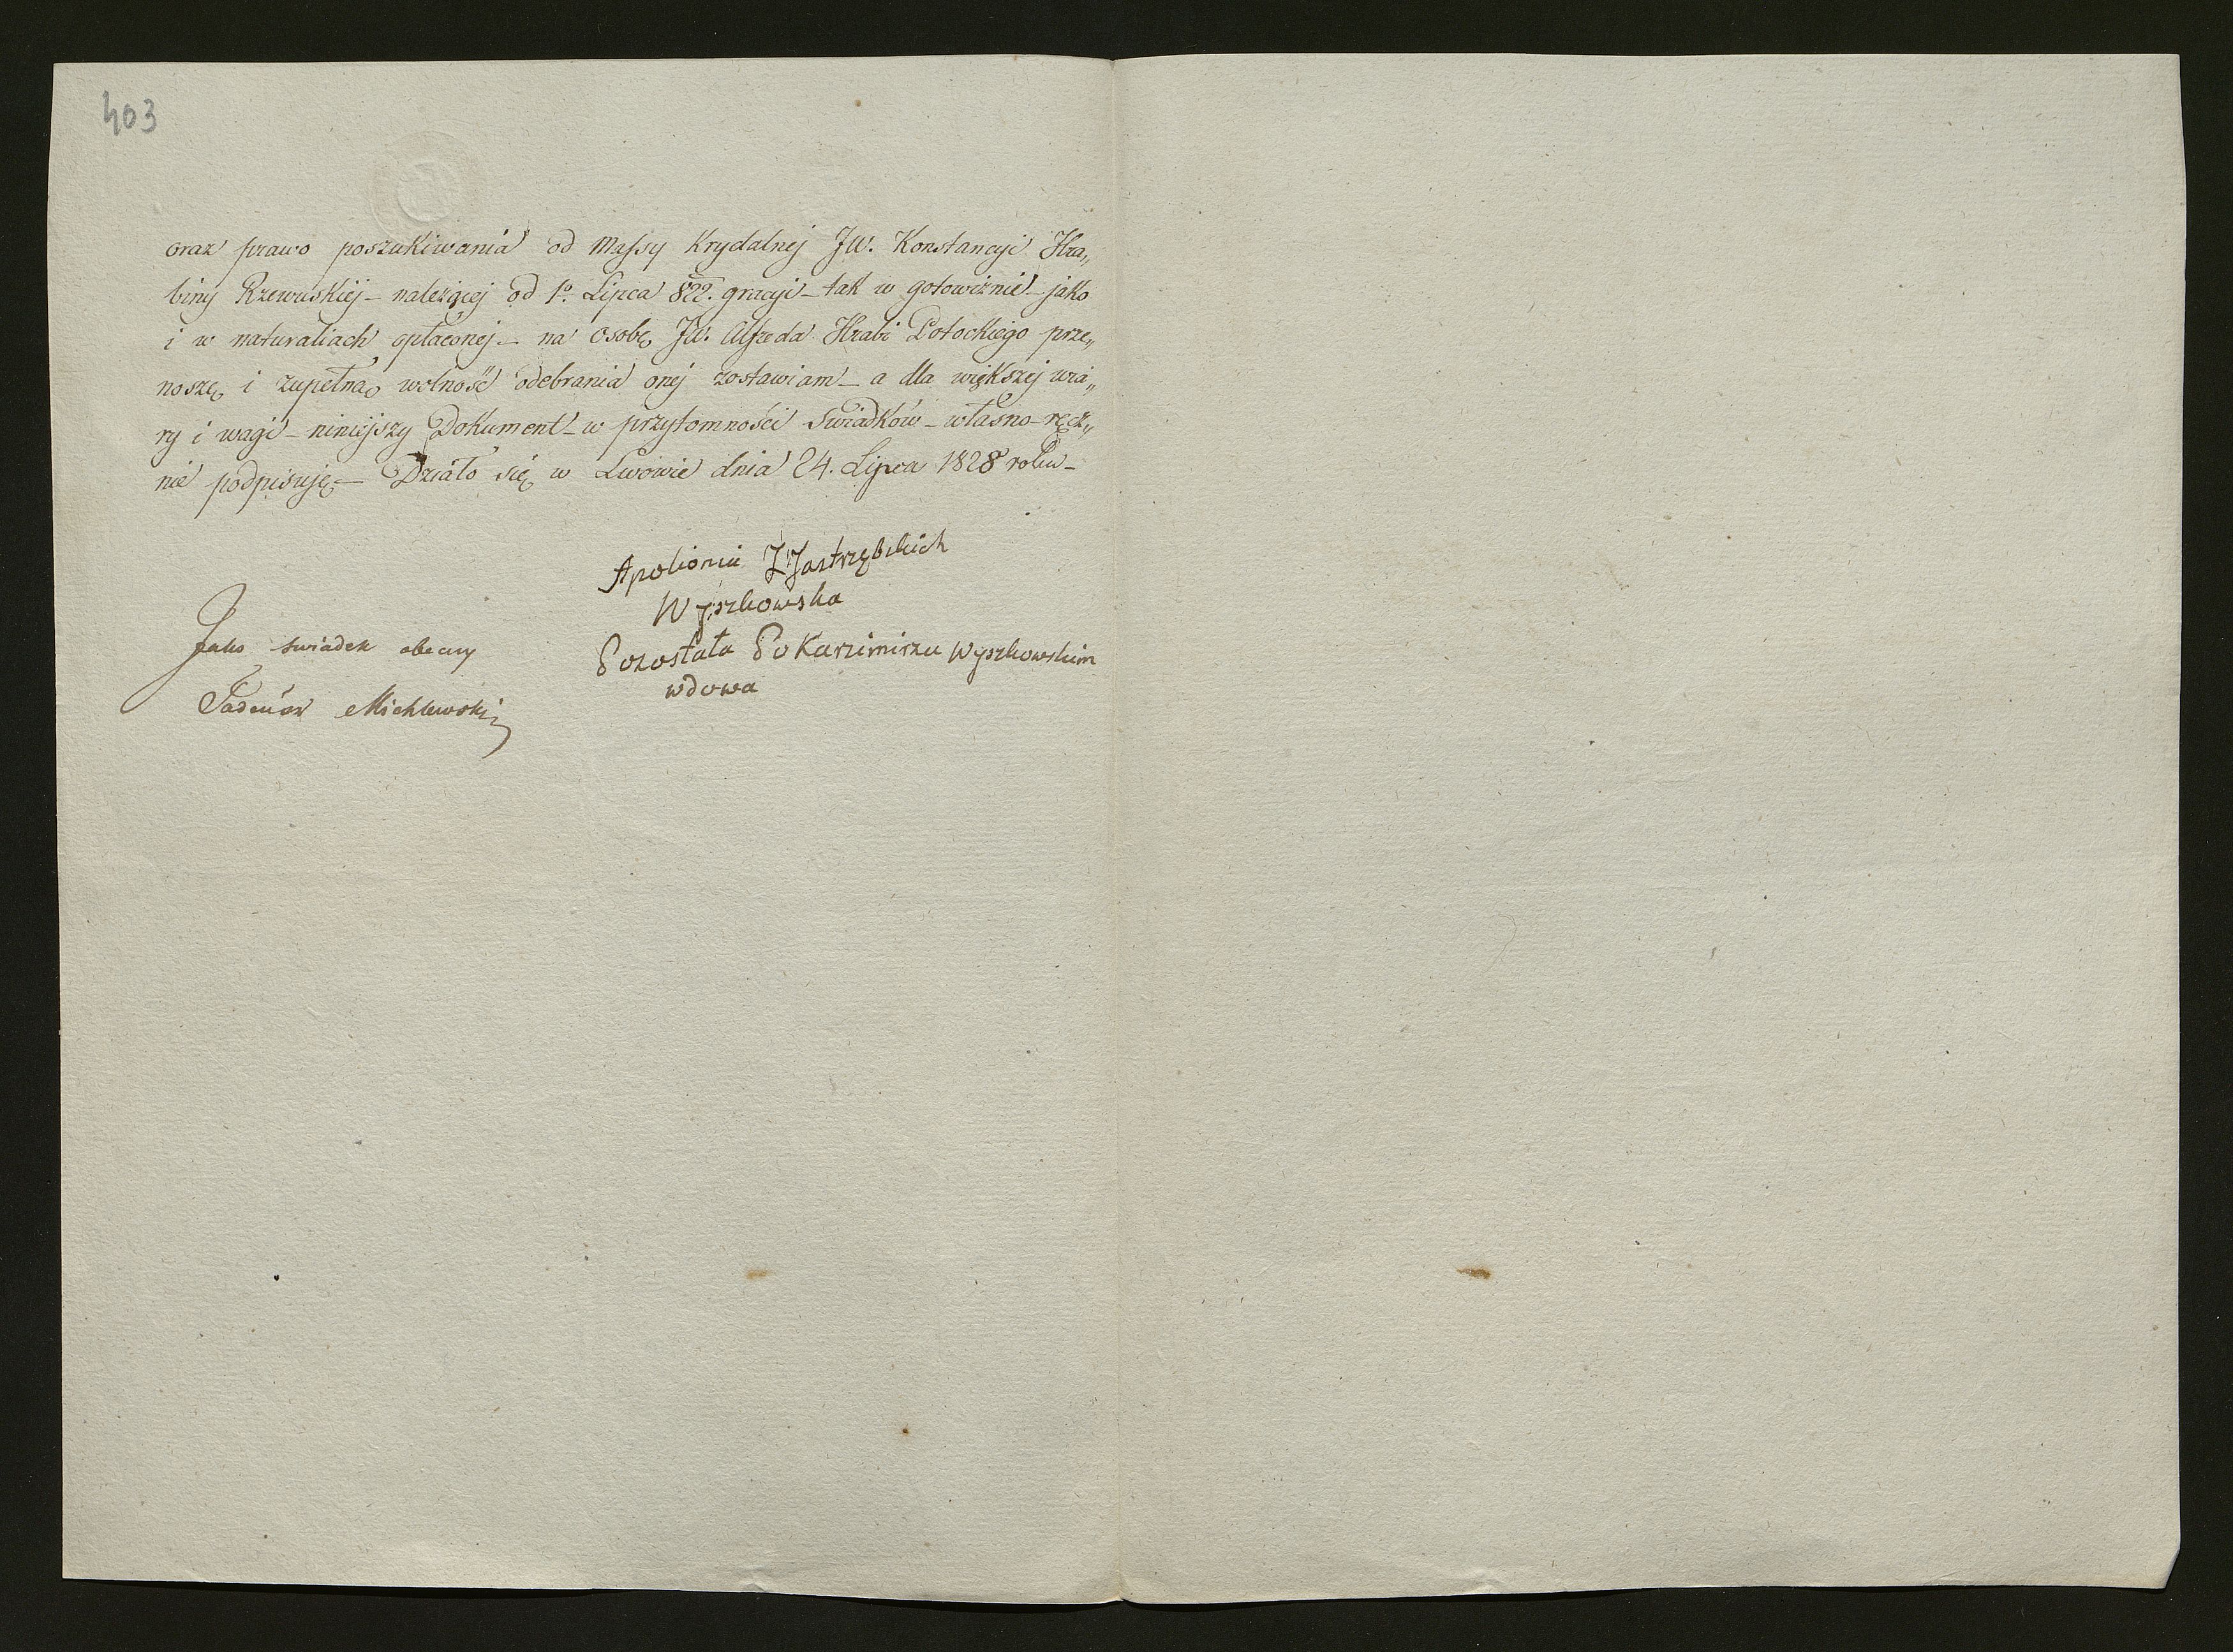 403
oraz prawo poszukiwania od Massy Krydalnej JW. Konstancyi Hra„
biny Rzewuskiej – należącej od 1º. Lipca 822. gracyi – tak w gotowiźnie – jako
i w naturaliach opłaconej – na osobę JW. Alfreda Hrabi Potockiego prze„
noszę i zupełną wolność odebrania onej zostawiam – a dla większej wia„
ry i wagi – niniejszy Dokument – w przytomności Swiadków – własno-ręcz„
nie podpisuję – Działo się w Lwowie dnia 24. Lipca 1828 roku –
Apolionia Z Jastrzębskich
Wyszkowska
Pozostała Po Karzimirzu Wyszkowskim
wdowa
Jako swiadek obecny
Tadeusz Michlewski